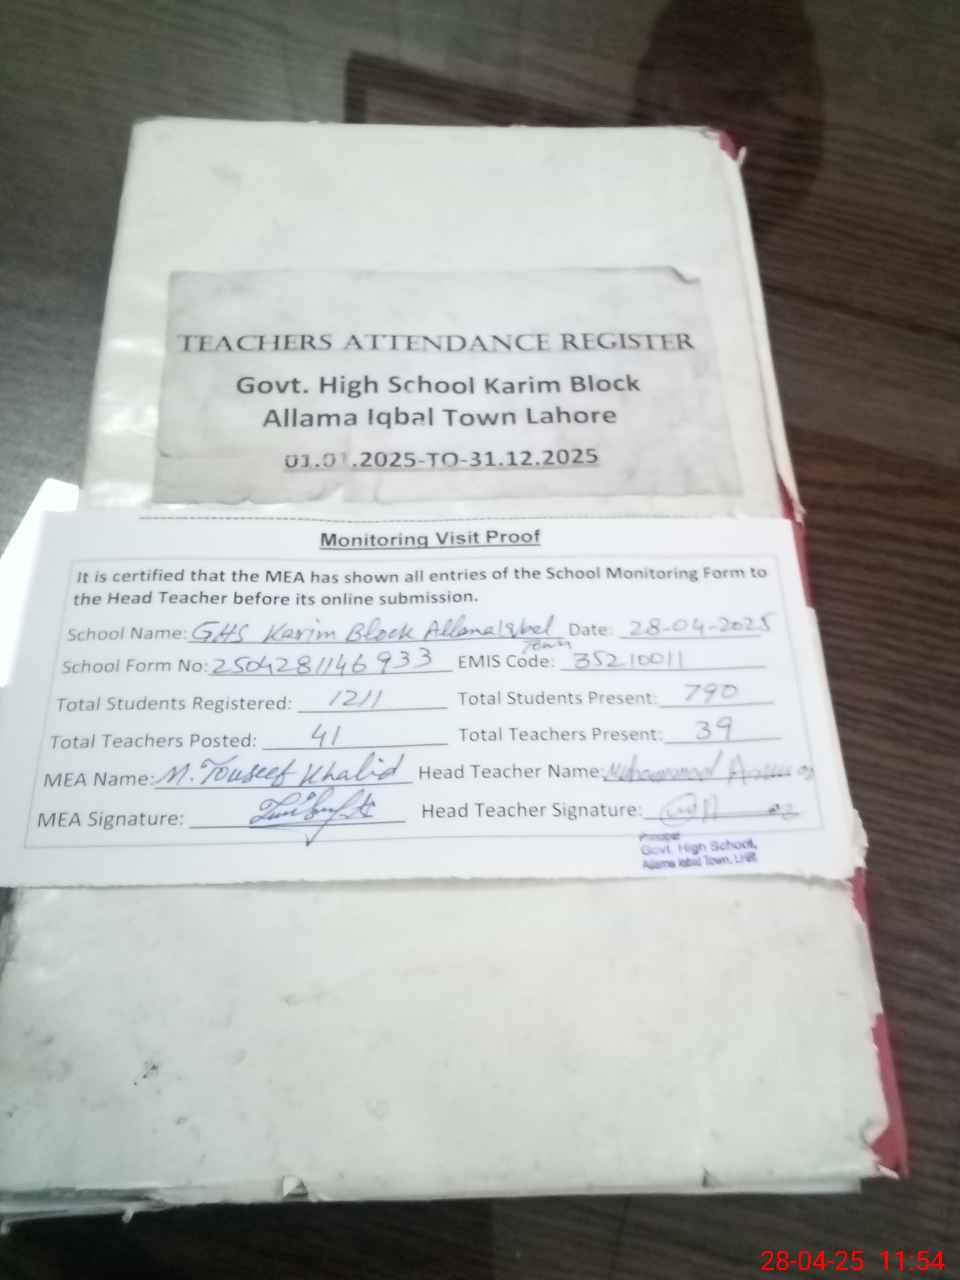 TEACHERS ATTENDANCE REGISTER
Govt. High School Karim Block
Allama Iqbal Town Lahore
01.01.2025-TO-31.12.2025
Monitoring Visit Proof
It is certified that the MEA has shown all entries of the School Monitoring Form to
the Head Teacher before its online submission.
School Name: GHS Karim Block Allama Iqbal Town Date: 28-04-2025
School Form No: 2504281146933 EMIS Code: 35210011
Total Students Registered: 1211 Total Students Present: 790
Total Teachers Posted: 41 Total Teachers Present: 39
MEA Name: M. Touseef Khalid Head Teacher Name: Muhammad
MEA Signature: Head Teacher Signature:
Principal
Govt. High School,
Allama Iqbal Town, LHR
28-04-25 11:54